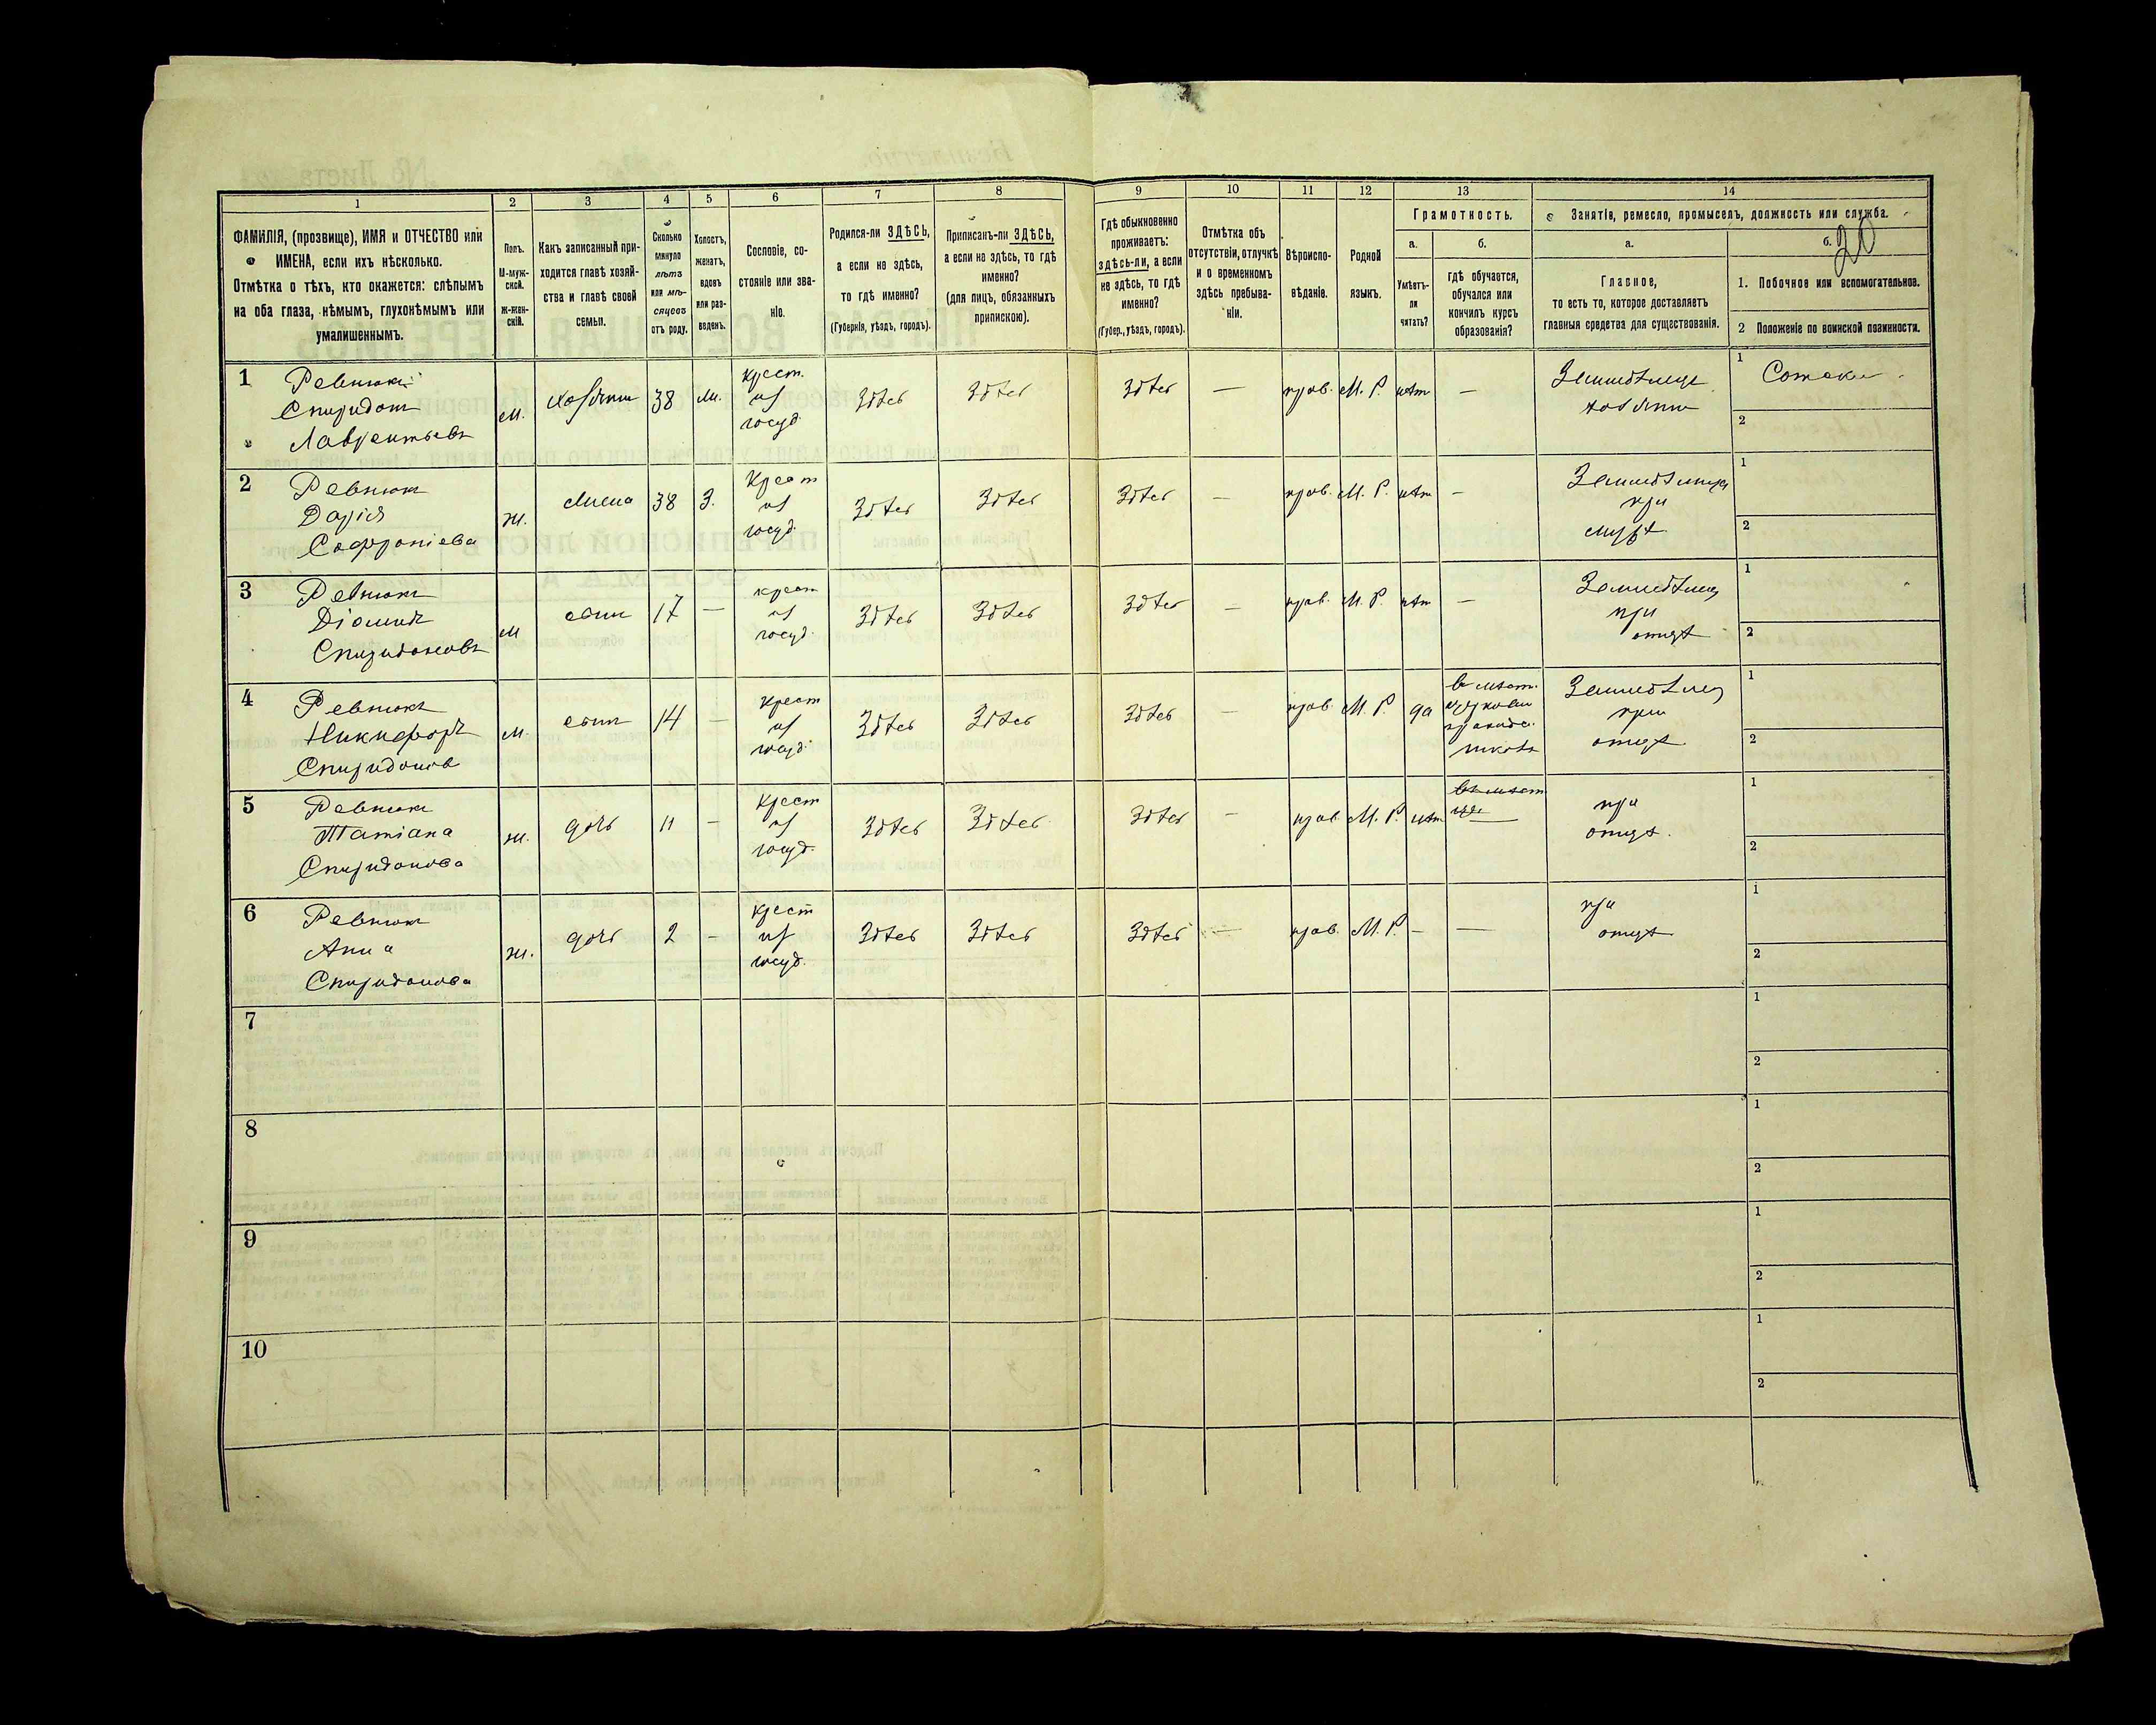 1 2 3 4 5 6 7 8 9 10 11 12 13 14
ФАМИЛІЯ, (прозвище), ИМЯ и ОТЧЕСТВО или
ИМЕНА, если ихъ нѣсколько.
Отмѣтка о тѣхъ, кто окажется: слѣпымъ
на оба глаза, нѣмымъ, глухонѣмымъ или
умалишеннымъ.
Полъ.
М-муж-
ской.
Ж-жен-
скій.
Какъ записанный при-
ходится главѣ хозяй-
ства и главѣ своей
семьи.
Сколько
минуло
лѣтъ
или мѣ-
сяцевъ
отъ роду.
Холостъ,
женатъ,
вдовъ
или раз-
веденъ.
Сословіе, со-
стояніе или зва-
ніе.
Родился-ли ЗДѢСЬ,
а если не здѣсь,
то гдѣ именно?
(Губернія, уѣздъ, городъ).
Приписанъ-ли ЗДѢСЬ,
а если не здѣсь, то гдѣ
именно?
(для лицъ, обязанныхъ
припискою).
Гдѣ обыкновенно
проживаетъ:
здѣсь-ли, а если
не здѣсь, то гдѣ
именно?
(Губер., уѣздъ, городъ).
Отмѣтка объ
отсутствіи, отлучкѣ
и о временномъ
здѣсь пребыва-
ніи.
Вѣроиспо-
вѣданіе.
Родной
языкъ.
Грамотность.
а.
Умѣетъ-
ли
читать?
б.
гдѣ обучается,
обучался или
кончилъ курсъ
образованія?
Занятія, ремесло, промыселъ, должность или служба.
а.
Главное,
то есть то, которое доставляетъ
главныя средства для существованія.
б.
20
1. Побочное или вспомогательное.
2 Положеніе по воинской повинности.
1
Ревнюкъ
Спиридонъ
Лаврентьевъ
м.
хозяинъ
38
ж.
крест.
из
госуд.
Здѣсь
Здѣсь
Здѣсь
—
прав.
М. Р.
нѣтъ
—
Земледѣлецъ
хозяинъ
1
2
2
Ревнюкъ
Дарія
Софроніева
ж.
жена
38
З.
Крест
из
госуд.
Здѣсь
Здѣсь
Здѣсь
—
прав.
М. Р.
нѣтъ
—
при
мужѣ
1
2
3
Ревнюкъ
Діомидъ
Спиридоновъ
м
сынъ
17
—
крест
из
госуд.
Здѣсь
Здѣсь
Здѣсь
—
прав.
М. Р.
нѣтъ
—
Земледѣлец
при
отцѣ
1
2
4
Ревнюкъ
Никифоръ
Спиридонов
м.
сынъ
14
—
крест
из
госуд.
Здѣсь
Здѣсь
Здѣсь
—
прав.
М. Р.
да
в мѣст.
церковн
школѣ
Земледѣлец
при
отцѣ
1
2
5
Ревнюкъ
Татіана
Спиридонова
ж.
дочь
11
—
крест
из
госуд.
Здѣсь
Здѣсь
Здѣсь
—
прав
М. Р.
нѣт
въ мѣст
при
отцѣ.
1
2
6
Ревнюкъ
Анна
Спиридонова
ж.
дочь
2
—
крест
из
госуд.
Здѣсь
Здѣсь
Здѣсь
—
прав.
М. Р.
—
—
при
отцѣ
1
2
7
1
2
8
1
2
9
1
2
10
1
2